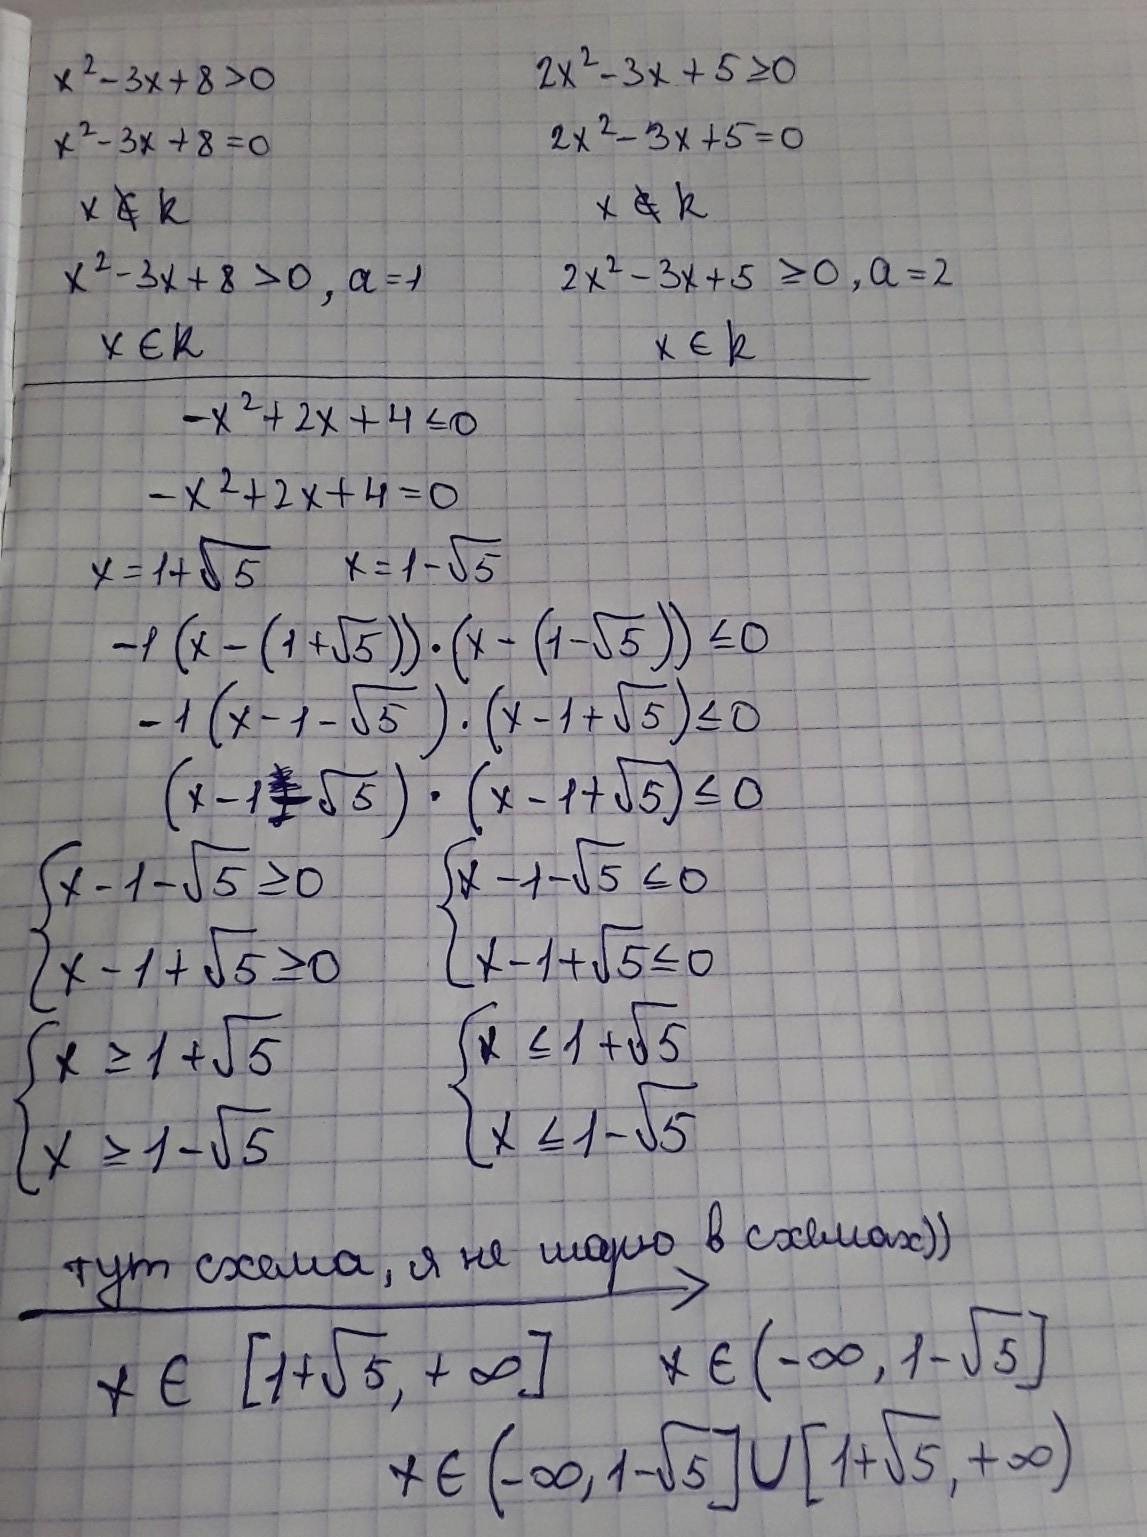 x²-3x+8>0 2x²-3x+5≥0
x²-3x+8=0 2x²-3x+5=0
x∉k x∉k
x²-3x+8>0, a=1 2x²-3x+5≥0, a=2
x∈k x∈k
-x²+2x+4≤0
-x²+2x+4=0
x=1+√5 x=1-√5
-1(x-(1+√5))·(x-(1-√5))≤0
-1(x-1-√5)·(x-1+√5)≤0
(x-1-√5)·(x-1+√5)≤0
{x-1-√5≥0 {x-1-√5≤0
x-1+√5≥0 x-1+√5≤0
{x≥1+√5 {x≤1+√5
x≥1-√5 x≤1-√5
тут схема, я не шарю в схемах))
x∈[1+√5,+∞] x∈(-∞,1-√5]
x∈(-∞,1-√5]∪[1+√5,+∞)